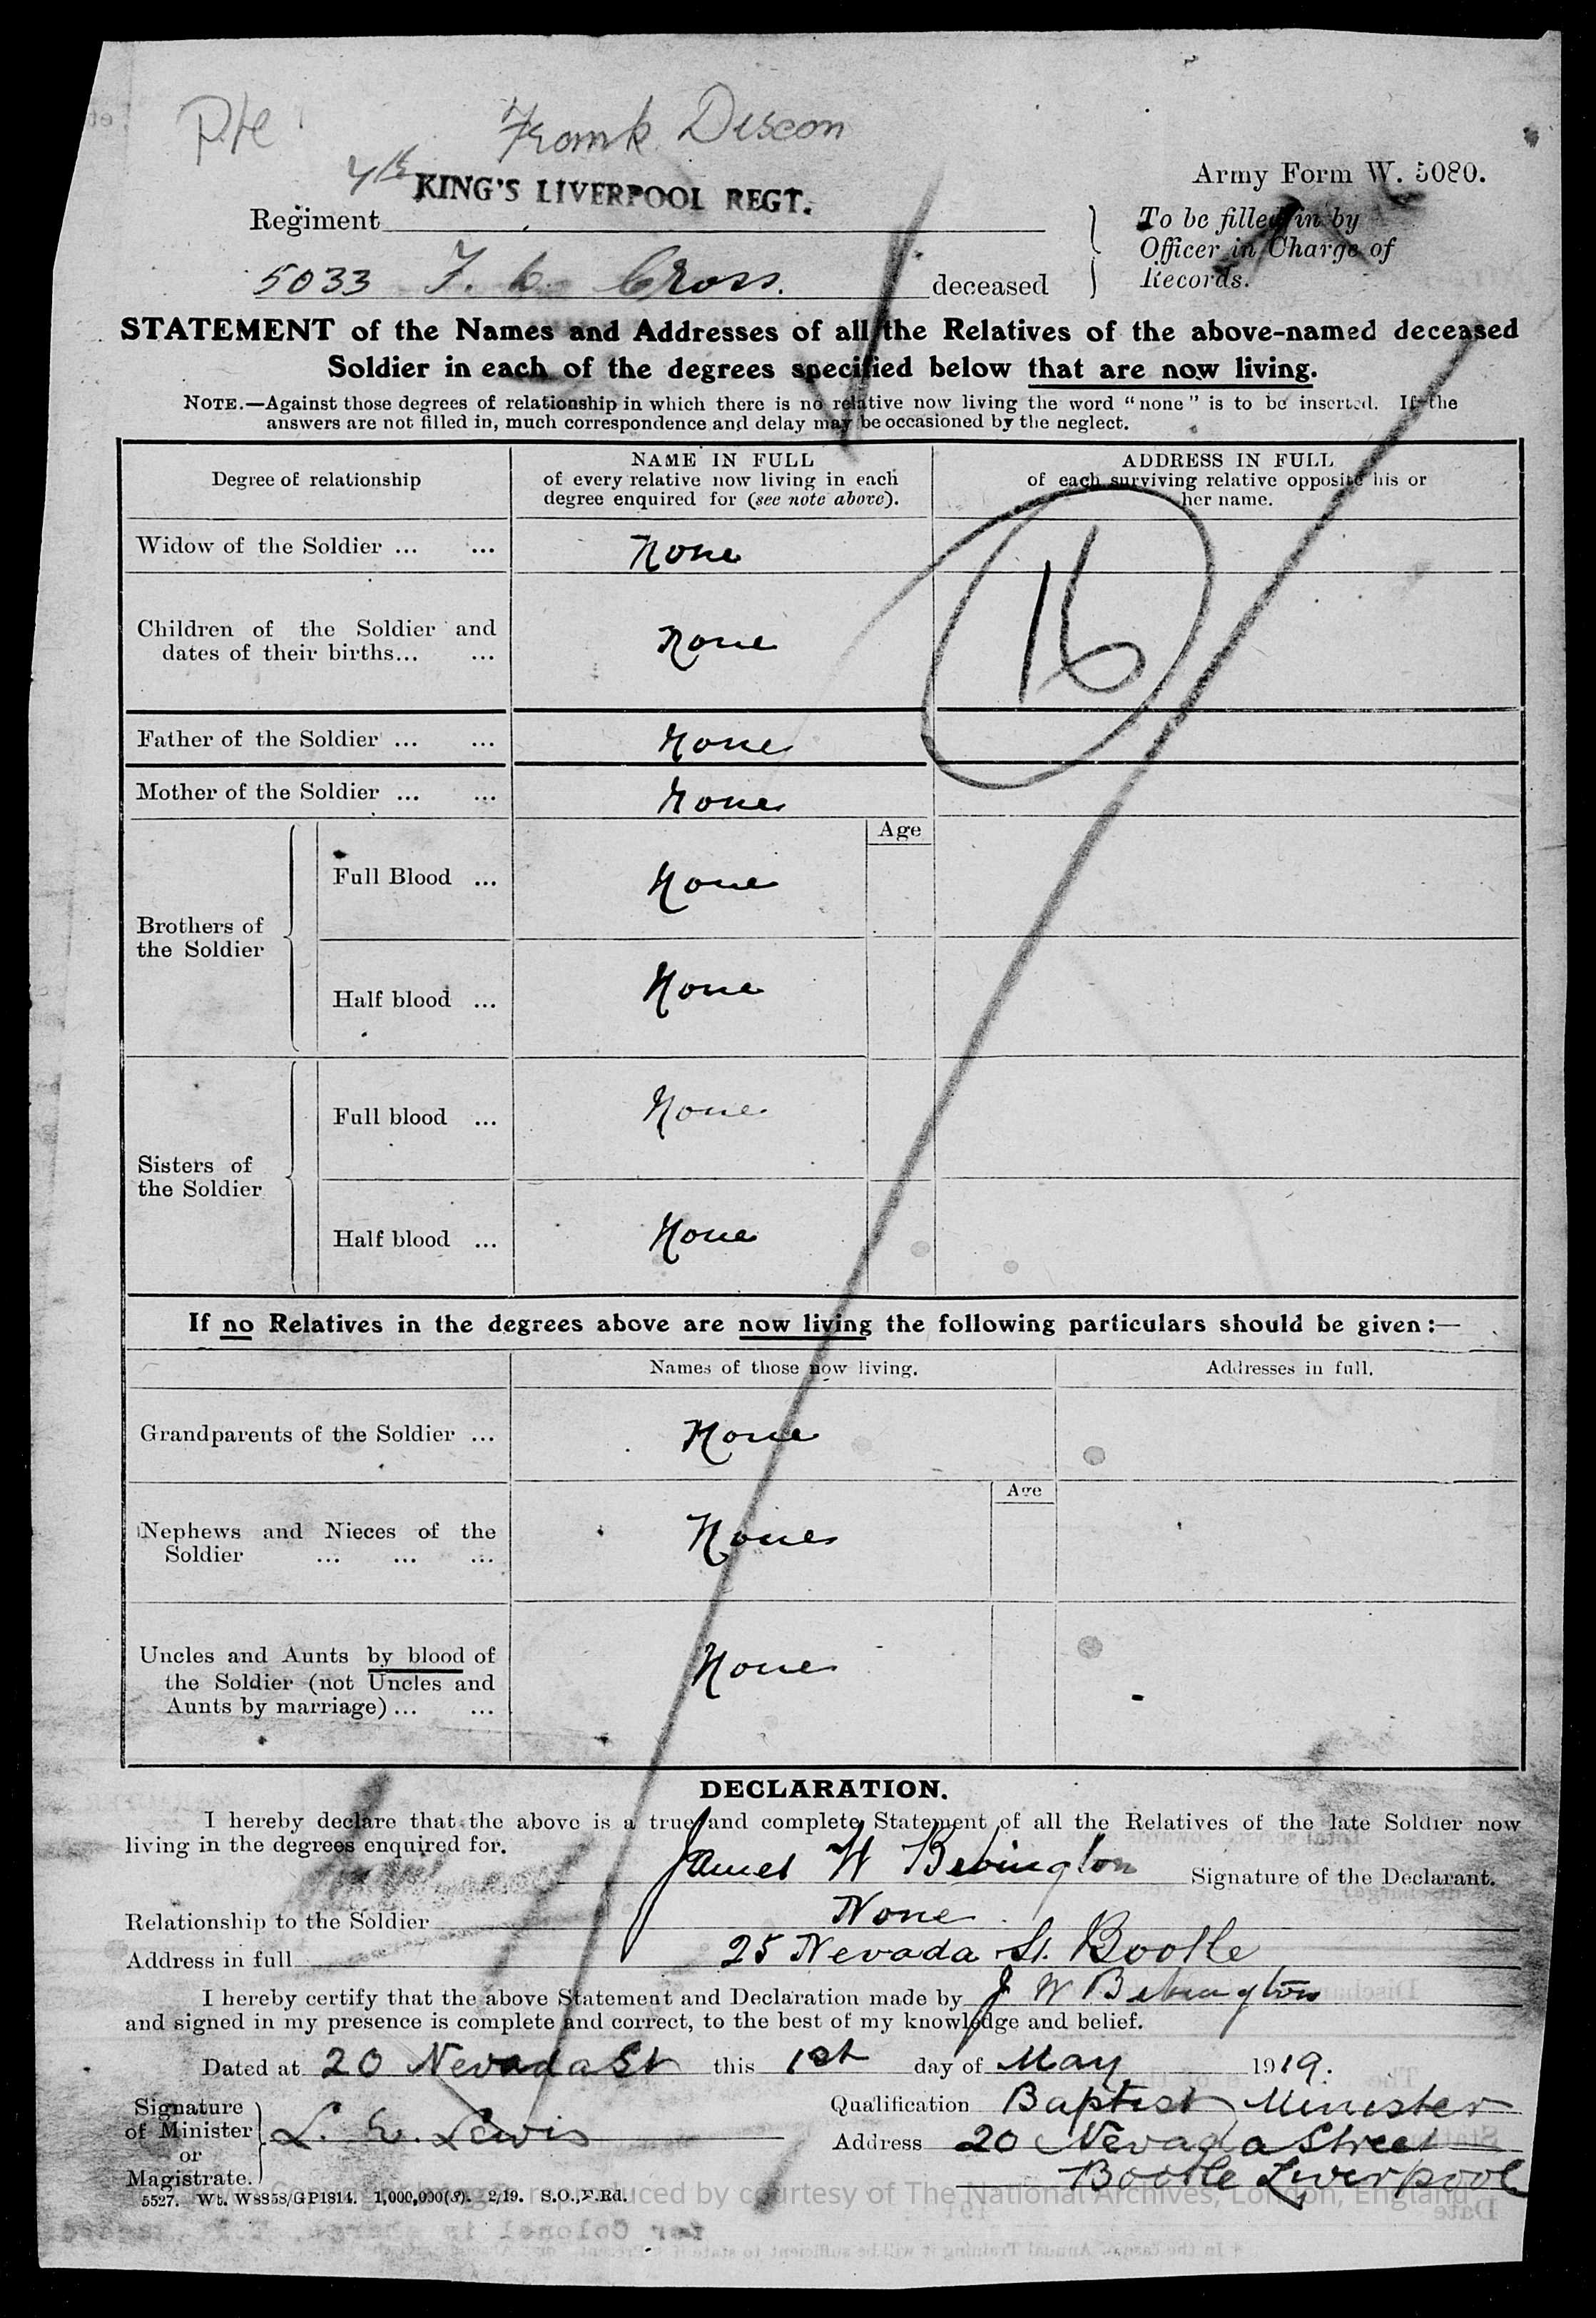 Pte Frank Discon
4th KING'S LIVERPOOL REGT.
Army Form W. 5080.
Regiment
To be filled in by
Officer in Charge of
Records.
5033 F. C. Cross. deceased
STATEMENT of the Names and Addresses of all the Relatives of the above-named deceased
Soldier in each of the degrees specified below that are now living.
NOTE.—Against those degrees of relationship in which there is no relative now living the word "none" is to be inserted. If the
answers are not filled in, much correspondence and delay may be occasioned by the neglect.
Degree of relationship
NAME IN FULL
of every relative now living in each
degree enquired for (see note above).
ADDRESS IN FULL
of each surviving relative opposite his or
her name.
Widow of the Soldier ... ... None
16
Children of the Soldier and
dates of their births... ... None
Father of the Soldier ... ... None
Mother of the Soldier ... ... None
Age
Brothers of
the Soldier
Full Blood ... None
Half blood ... None
Sisters of
the Soldier
Full blood ... None
Half blood ... None
If no Relatives in the degrees above are now living the following particulars should be given:—
Names of those now living. Addresses in full.
Grandparents of the Soldier ... None
Age
Nephews and Nieces of the
Soldier ... ... ... None
Uncles and Aunts by blood of
the Soldier (not Uncles and
Aunts by marriage) ... ... None
DECLARATION.
I hereby declare that the above is a true and complete Statement of all the Relatives of the late Soldier now
living in the degrees enquired for.
James W Bebington Signature of the Declarant.
Relationship to the Soldier None
Address in full 25 Nevada St. Bootle
I hereby certify that the above Statement and Declaration made by J W Bebington
and signed in my presence is complete and correct, to the best of my knowledge and belief.
Dated at 20 Nevada St this 1st day of May 1919.
Signature
of Minister
or
Magistrate.
L. E. Lewis
Qualification Baptist Minister
Address 20 Nevada Street
Bootle Liverpool
5527. Wt. W8858/GP1814. 1,000,000(8). 2/19. S.O.,F.Rd.
courtesy of The National Archives, London, England